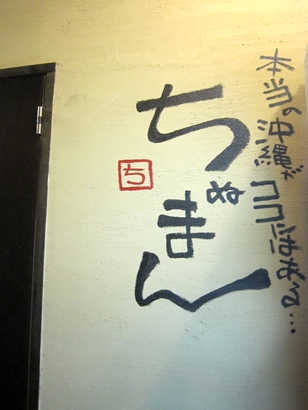 本当の沖縄がココにはある…
ちぬまん
ち